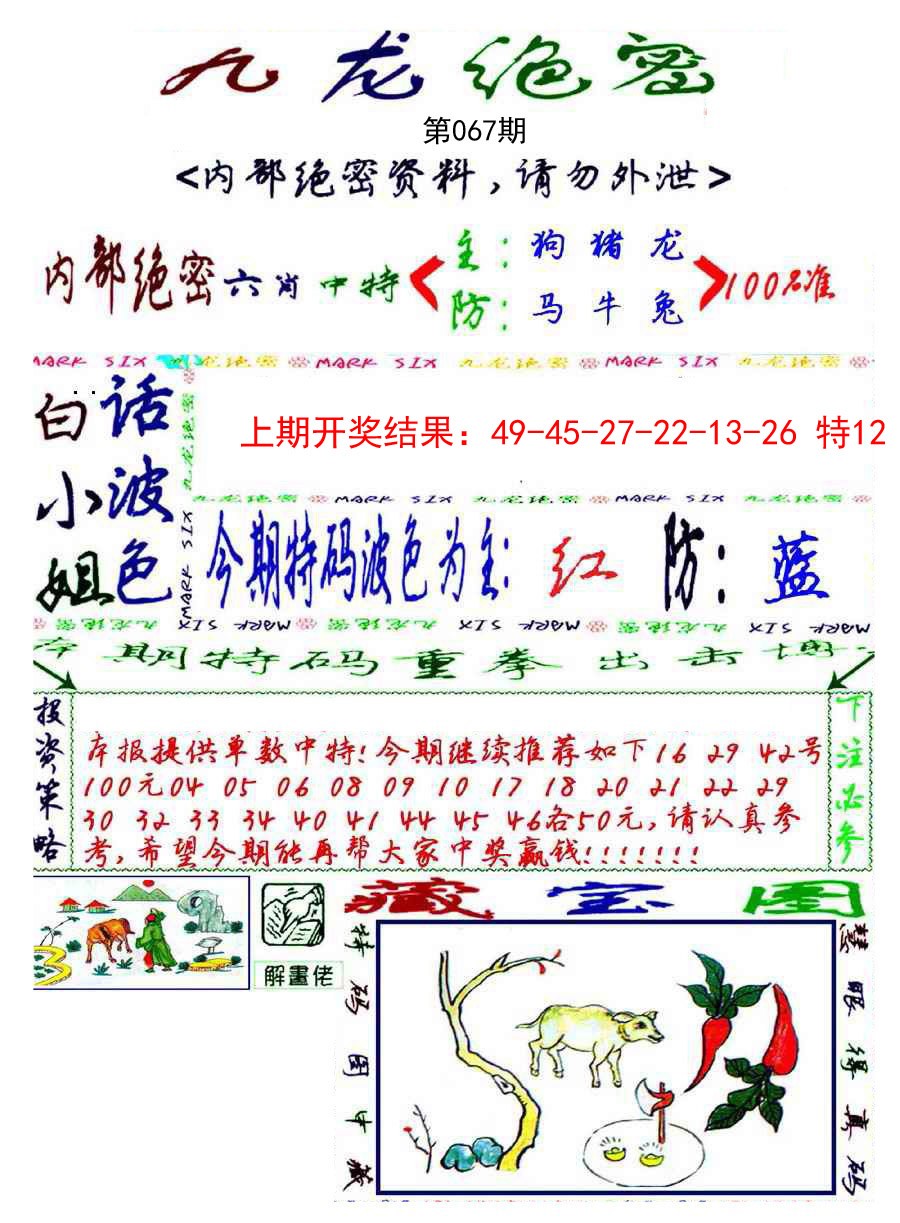 九龙绝密
第067期
<内部绝密资料,请勿外泄>
内部绝密六肖中特
主:狗猪龙
防:马牛兔
100%准
MARK SIX 九龙绝密 MARK SIX 九龙绝密 MARK SIX 九龙绝密
白话
小波
姐色
九龙绝密
MARK SIX
上期开奖结果：49-45-27-22-13-26 特12
九龙绝密 MARK SIX 九龙绝密 MARK SIX 九龙绝密
今期特码波色为主:红 防:蓝
九龙绝密 MARK SIX 九龙绝密 MARK SIX 九龙绝密 MARK SIX
本期特码重拳出击博
投资策略
本报提供单数中特!今期继续推荐如下16 29 42号
100元04 05 06 08 09 10 17 18 20 21 22 29
30 32 33 34 40 41 44 45 46各50元,请认真参
考,希望今期能再帮大家中奖赢钱!!!!!!!
下注必参
解畫佬
藏宝图
特码图中藏
慧眼得真码